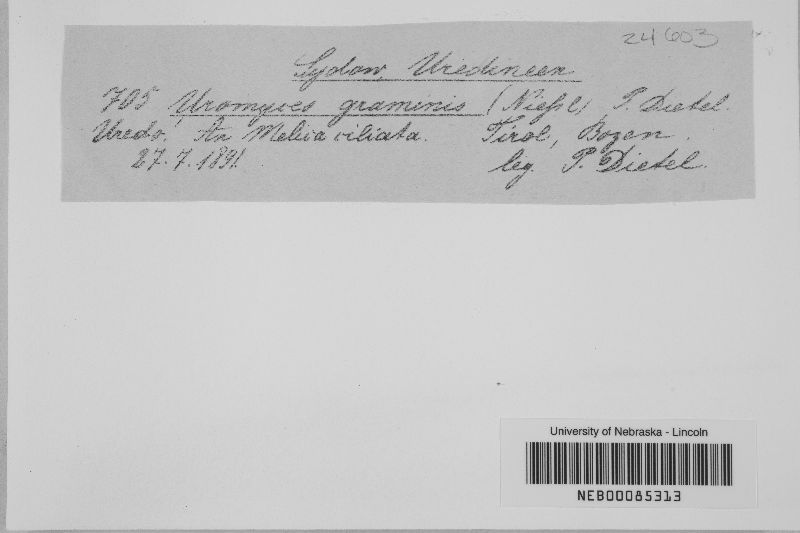 24603
Sydow, Uredineen
705 Uromyces graminis (Niessl) P. Dietel.
Uredo, An Melica ciliata. Tirol, Bozen.
27.7.1891. leg. P. Dietel.
University of Nebraska - Lincoln
NEB00085313